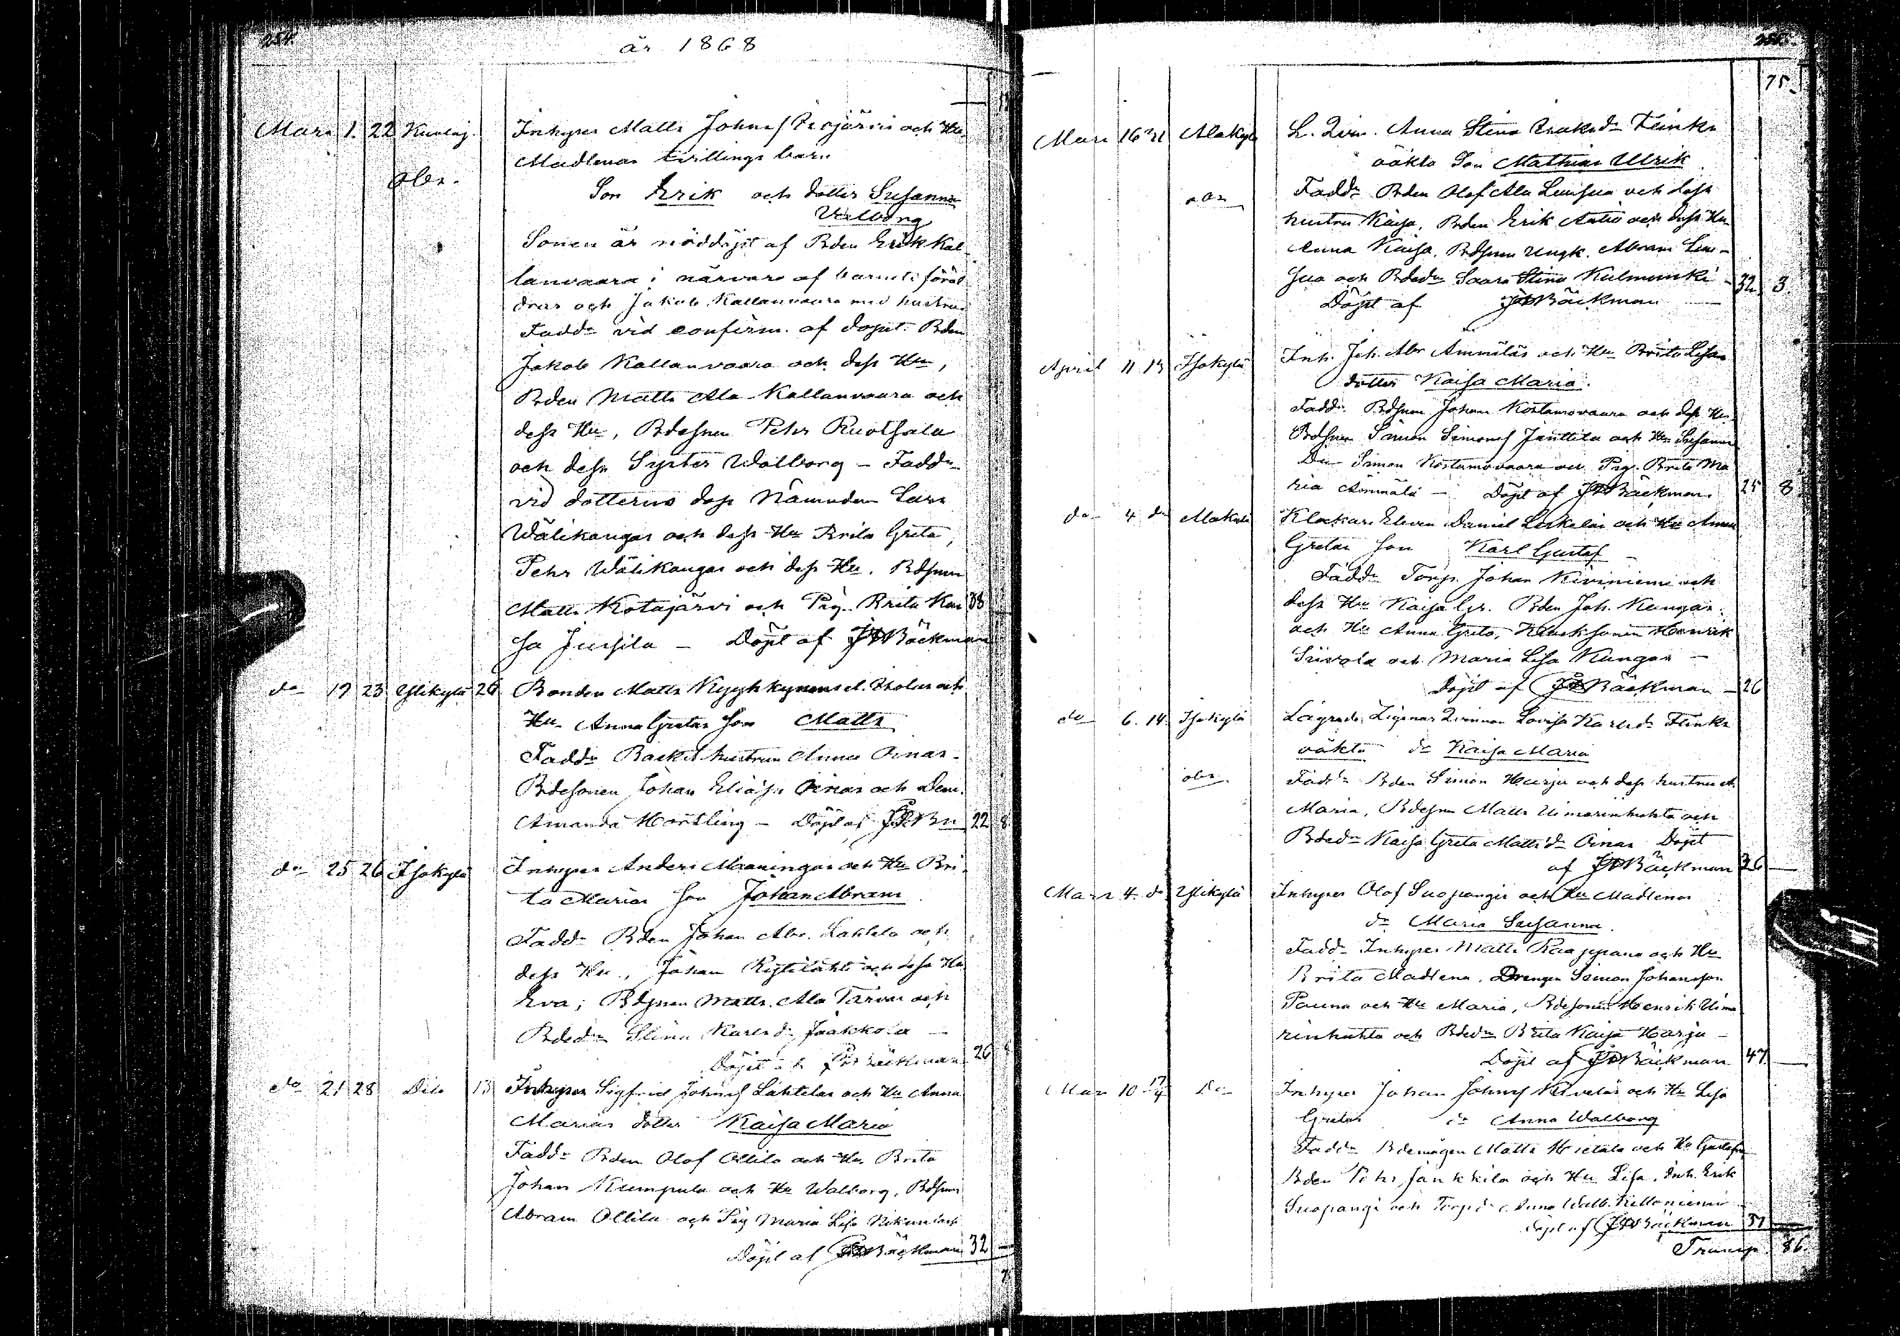 254.
år 1868
Mars 1. 22 Kuolaj. Inhyses Matts Johns/ Pesjärvi och Hu
Madlenas tvillings barn
obs. Son Erik och dotter Susanna
Valborg
Sonen är nöddöpt af Bden Erik Kal-
lanvaara i närvaro af barnets föräl-
drar och Jakob Kallanvaara med hustru.
Fadd. vid confirm. af dopet Bden
Jakob Kallanvaara och dess Hu,
Bden Matts Ala-Kallanvaara och
dess Hu, Bdesonen Pehr Ruotsala
och dess Syster Walborg – Fadd.
vid dotterns dop Nämndem Lars
Wälikangas och dess Hu Brita Greta,
Pehr Wälikangas och dess Hu. Bdsonen
Matts Kotajärvi och Pig. Brita Kai 33
sa Jussila – Döpt af Bäckman
do 19 23 Ylikylä 26 Bonden Matts
Hu Anna Gretas Son Matts
Fadd. hustrun Anna Oinas.
Bdesonen Johan Eliass. Oinas och Dem.
Amanda – Döpt af 22 8
do 25 26 Isokylä Inhyses Anders Maaningas och Hu Bri-
ta Marias Son Johan Abram
Fadd. Bden Johan Abr. Lahtela och
dess Hu, Johan Kyrölahti och dess Hu
Eva; Bdsonen Matts Ala Tarvas och
Bded. Stina Karlsd. Jaakkola –
Döpt af Bäckman 26 8
do 21 28 Dito 13 Inhyses Sigfrid Johns/ Lahtelas och Hu Anna
Marias dotter Kaisa Maria
Fadd. Bden Olof Ollila och Hu Brita
Johan Kumpula och Hu Walborg, Bdsonen
Abram Ollila och Pig Maria Lisa
Döpt af Bäckman 32 –
255.
75.
Mars 16 21 Alakylä L. Qvin. Anna Stina Eriksd. Flinks
oäkta Son Mathias Ulrik
obs Fadd. Bden Olof Ala Luusua och dess
hustru Kaisa, Bden Erik Antio och dess Hu
Anna Kaisa. Bdsonen Ungk. Abram Luu-
sua och Bded. Saara Stina Kulmunki – 32 3
Döpt af Bäckman
April 11 13 Isokylä Inh. Joh. Abr Ämmäläs och Hu Brita Lisas
dotter Kaisa Maria.
Fadd. Bdsonen Johan Kostamovaara och dess Hu
Bdsonen Simon Simons/ Janttila och Hu Susanna
Dr. Simon Kostamovaara och Pig. Brita Ma
ria Ämmälä – Döpt af Bäckman. 25 8
do 4 do Alakylä Klockars Eleven Daniel och Hu Anna
Gretas Son Karl Gustaf –
Fadd. Torp. Johan Kiviniemi och
dess Hu Kaisa Gr. Bden Joh. Kangas
och Hu Anna Greta, Henrik
och Maria Lisa Kangas –
Döpt af Bäckman – 26
do 6. 14. Isokylä Lägrade Zigenar Qvinnan Lovisa Karlsd. Flinks
oäkta dr Kaisa Maria
obs. Fadd. Bden Simon Harju och dess hustru A.
Maria, Bdesonen Matts Uimarinhuhta och
Bded. Kaisa Greta Mattsd. Oinas Döpt
af Bäckman 36 –
Mars 4. do Ylikylä Inhyses Olof Suopangis och Hu Madlenas
dr Maria Susanna.
Fadd. Inhyses Matts Raappana och Hu
Brita Madlena. Drengen Simon Johansson
Pauna och Hu Maria, Bdesonen Henrik Uima
rinhuhta och Bded. Brita Kaisa Harju –
Döpt af Bäckman 47 –
Mars 10 17/4 Do Inhyses Johan Johns/ Kivelas och Hu Lisa
Gretas dr Anna Walborg
Fadd. Bdemågen Matts Hietala och Hu Gustafva
Bden Pehr Jankkila och Hu Lisa, Inh. Erik
Suopangi och Torpd. Anna Walb.
Döpt af Bäckman 37 –
Transp. 86.